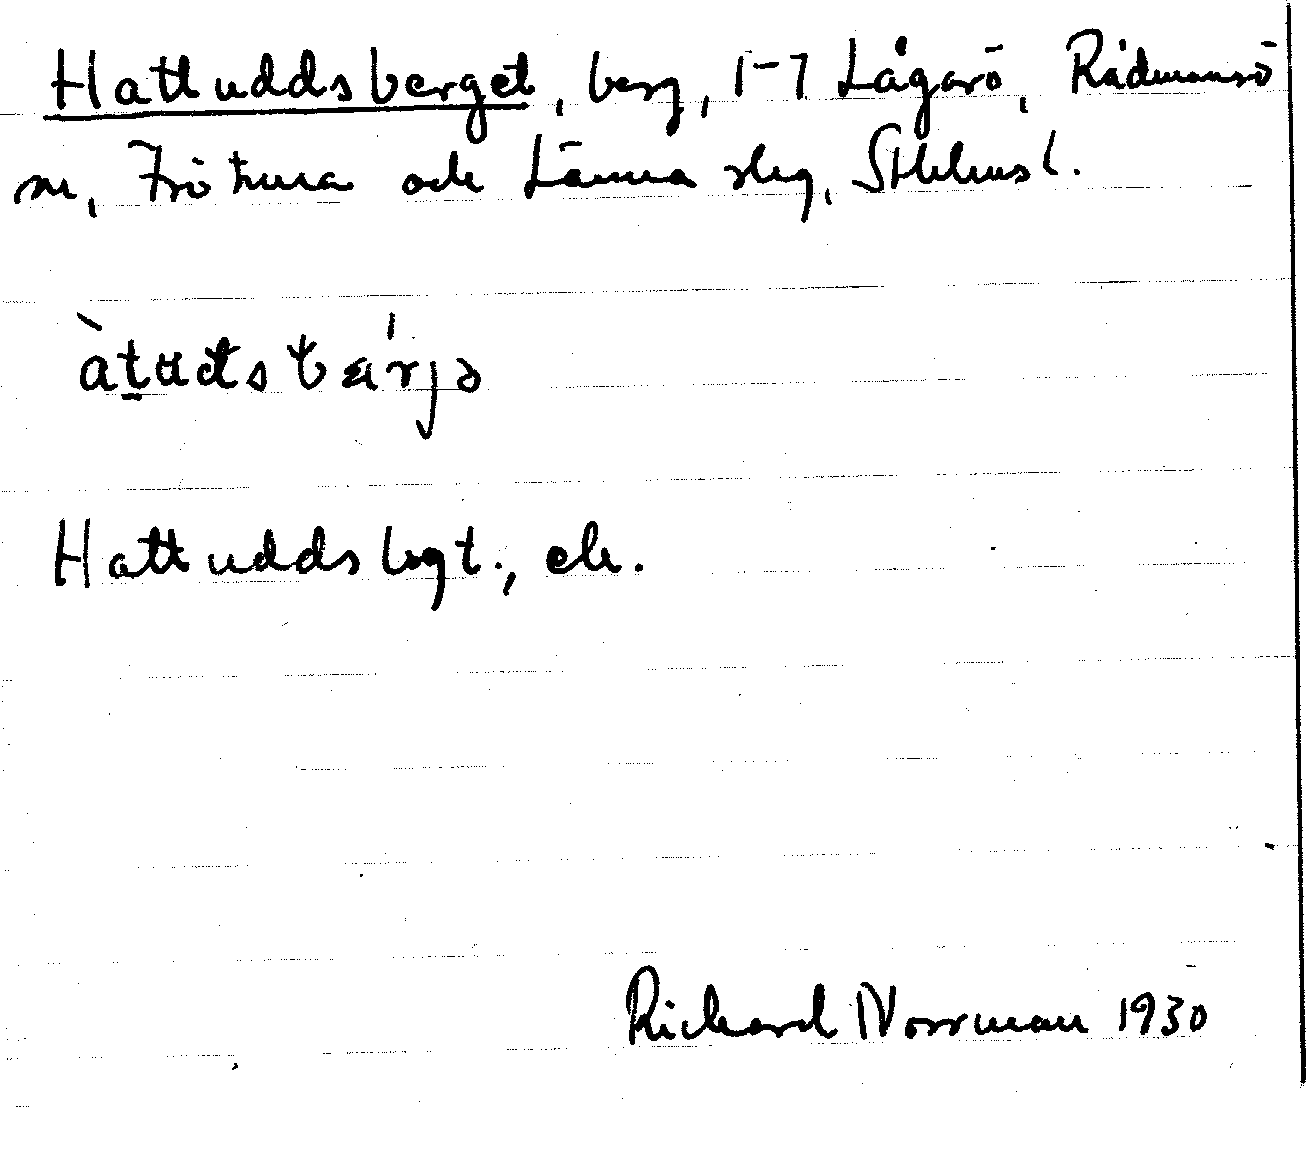 Hattuddsberget, berg, 1-7 Lågarö, Rådmansö
sn, Frötuna och Länna sklg, Sthlms l.
àtudsbär'jə
Hattuddsbgt., ek.
Richard Norrman 1930